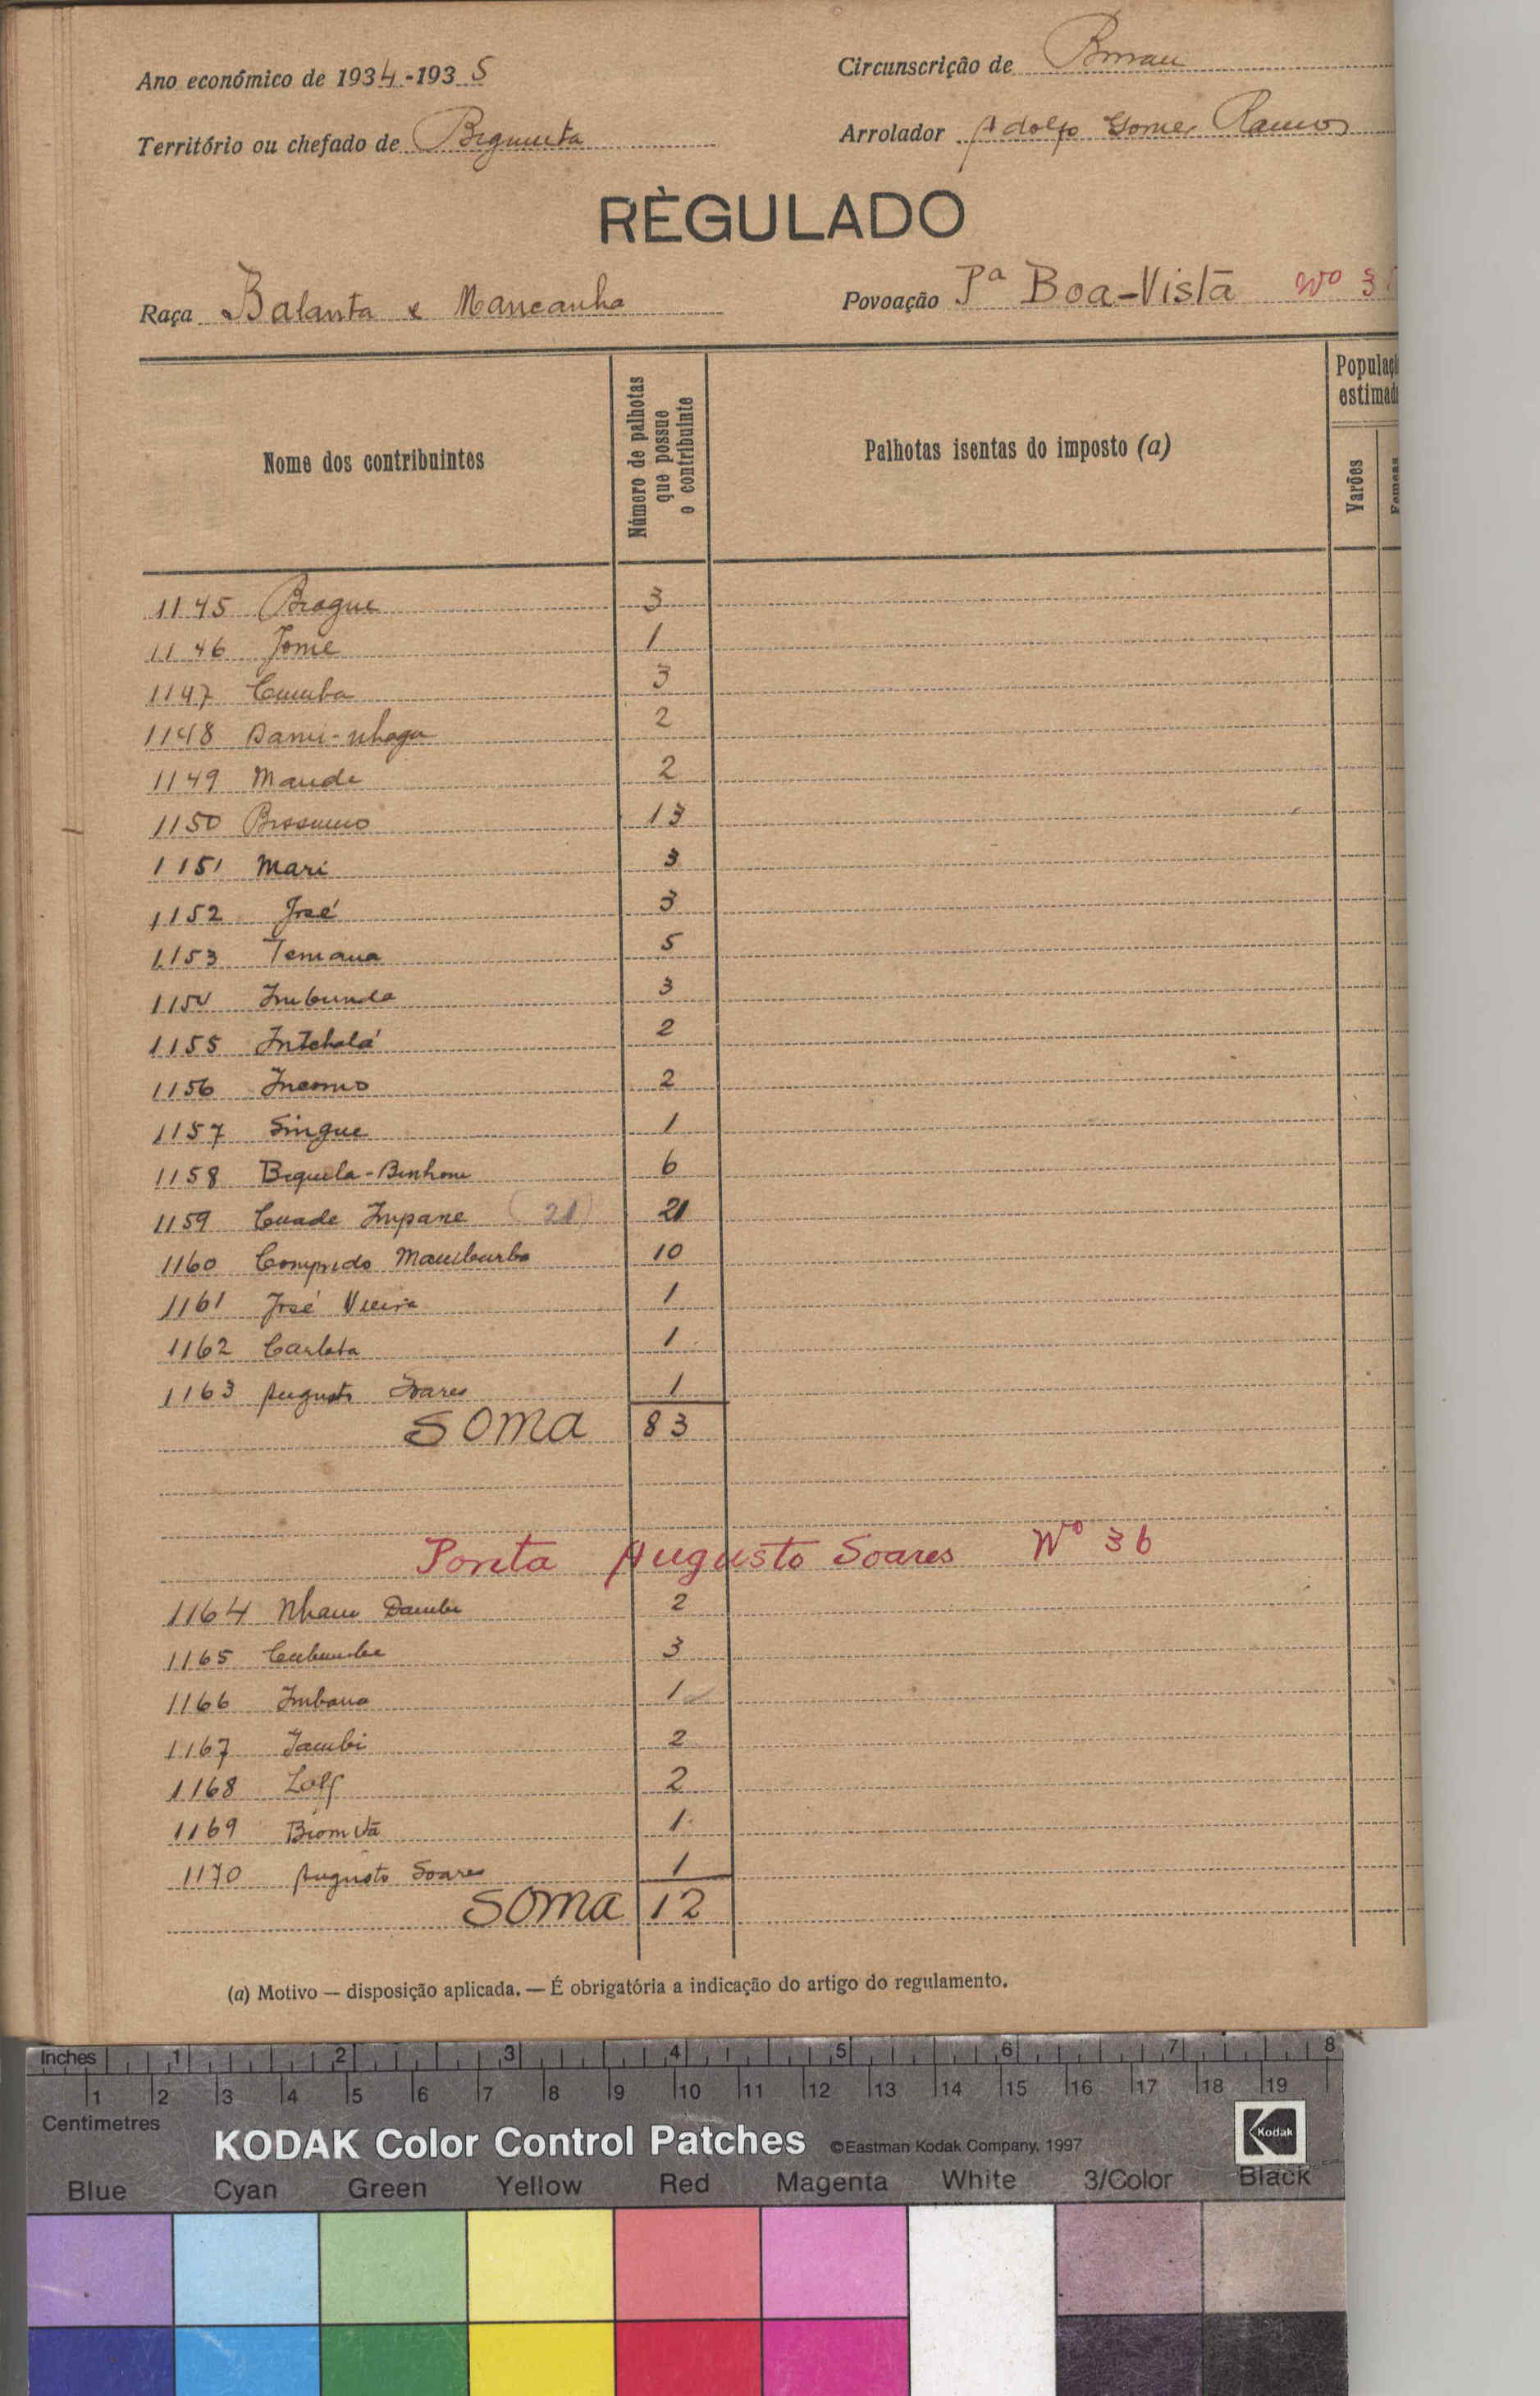 Ano económico de 1934-1935
Circunscrição de Bissau
Território ou chefado de Bigimita
Arrolador Adolfo Gomes Ramos
RÈGULADO
Raça Balanta e Mancanha
Povoação Pª Boa-Vistã Nº 3
Nome dos contribuintes
Número de palhotas que possue o contribuinte
Palhotas isentas do imposto (a)
Populaçã estimada
Varões
1145 Brague 3
1146 Jome 1
1147 3
1148 Dami-nhaga 2
1149 Maude 2
1150 13
1151 Mari 3
1152 José 3
1153 Temaua 5
1154 Imbunda 3
1155 Intchalá 2
1156 2
1157 Singue 1
1158 Biquela-Binhom 6
1159 Cuade Impane (21) 21
1160 Comprido 10
1161 José Vieira 1
1162 Carlota 1
1163 Augusto Soares 1
SOMA 83
Ponta Augusto Soares Nº 36
1164 Nham Dambi 2
1165 3
1166 Imbana 1
1167 Jambi 2
1168 2
1169 1
1170 Augusto Soares 1
SOMA 12
(a) Motivo — disposição aplicada. — É obrigatória a indicação do artigo do regulamento.
Inches 1 2 3 4 5 6 7 8
1 2 3 4 5 6 7 8 9 10 11 12 13 14 15 16 17 18 19
Centimetres
KODAK Color Control Patches ©Eastman Kodak Company, 1997 Kodak
Blue Cyan Green Yellow Red Magenta White 3/Color Black